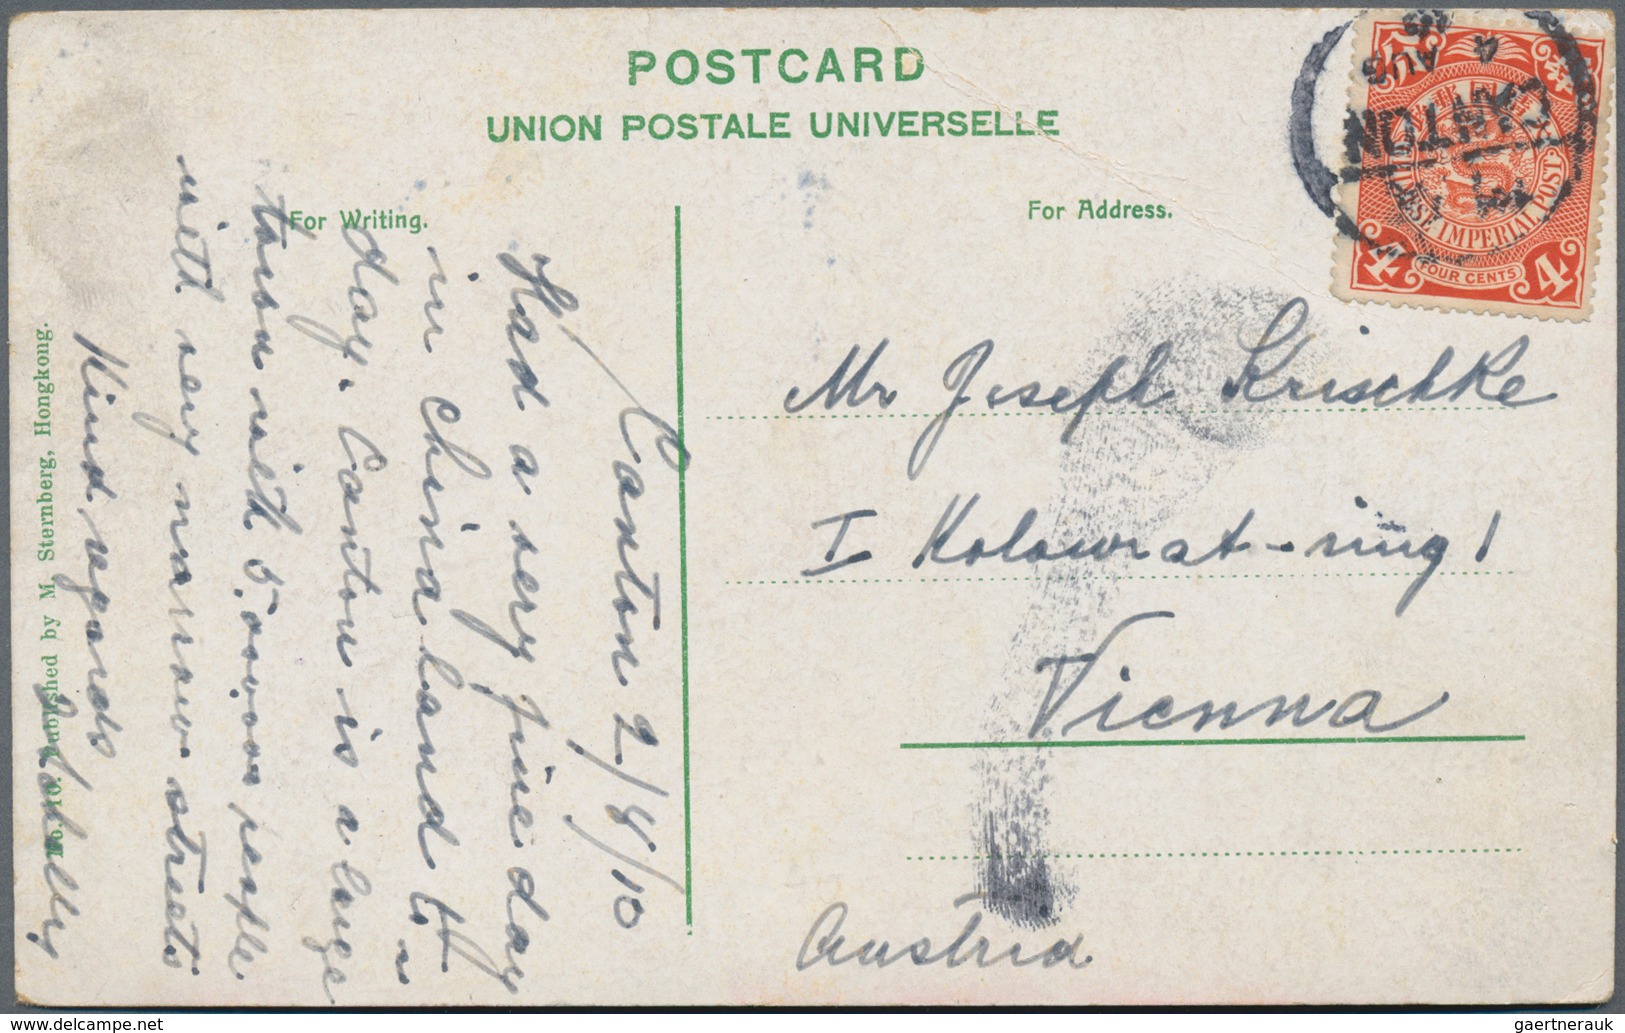 POSTCARD
UNION POSTALE UNIVERSELLE
For Writing.
For Address.
CANTON
4
AUG
CHINESE IMPERIAL POST
FOUR CENTS
4 4
Canton 2/8/10
Had a very fine day
in China land
day. Canton is a large
town with 5.000,000 people
with very narrow streets
Kind regards
No. 10. Published by M. Sternberg, Hongkong.
Mr Joseph Krischke
I Kolowrat-ring 1
Vienna
Austria
gaertnerauk